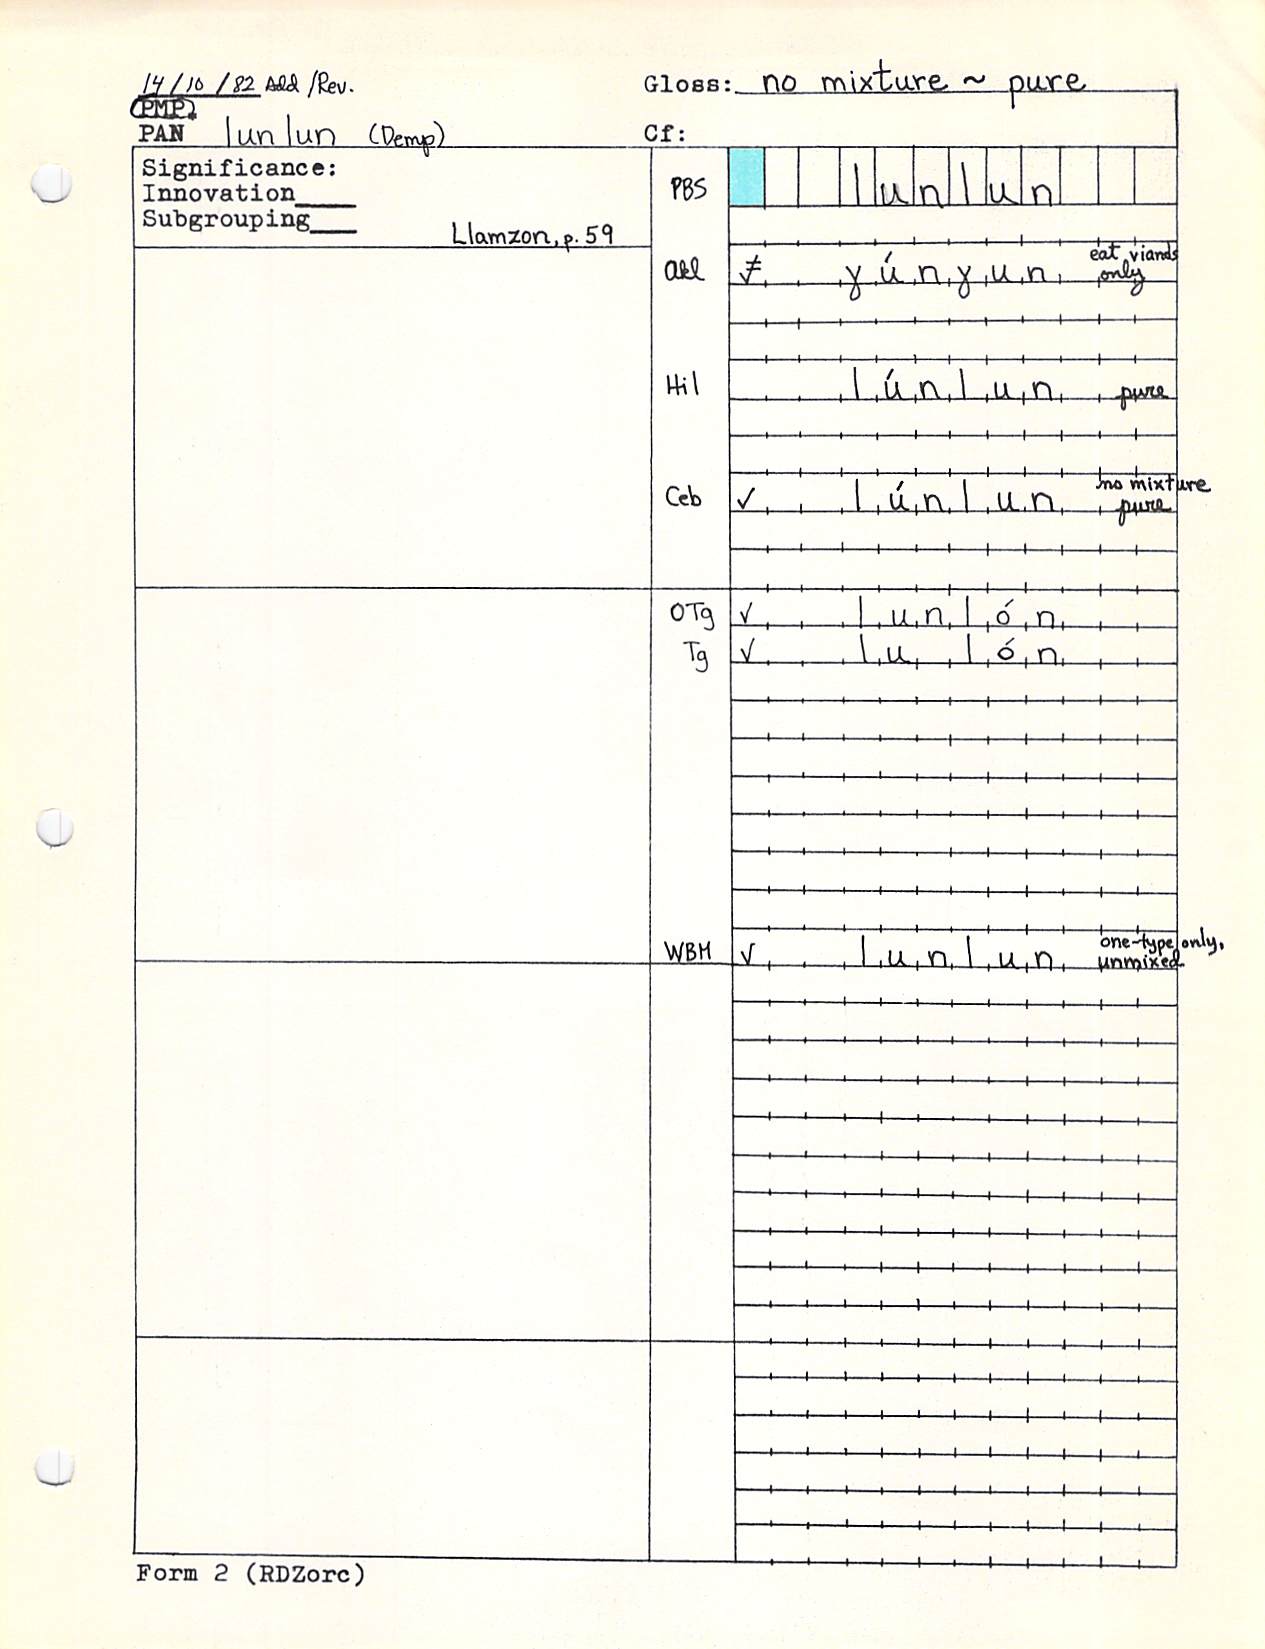 14/10/82 Add/Rev.
Gloss: no mixture ~ pure
PMP
PAN lunlun (Demp)
Cf:
Significance:
Innovation
Subgrouping
Llamzon, p. 59
PBS lunlun
Akl ≠ ɣúnɣun eat viands only
Hil lúnlun pure
Ceb ✓ lúnlun no mixture pure
OTg ✓ lunlón
Tg ✓ lu lón
WBM ✓ lunlun one-type only, unmixed
Form 2 (RDZorc)